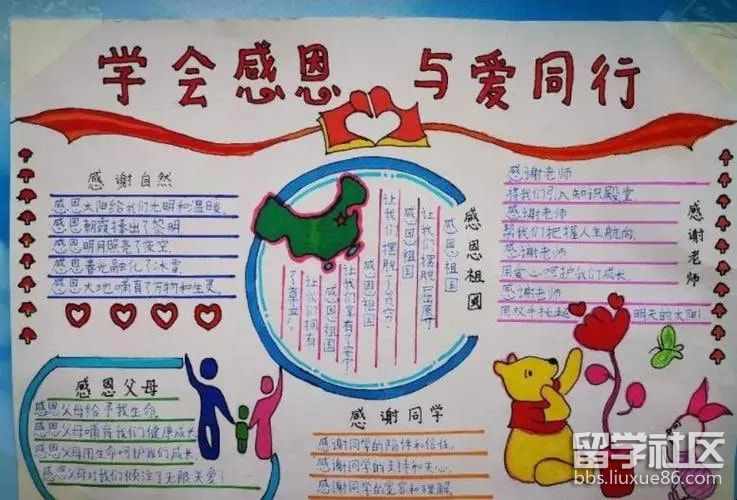 学会感恩 与爱同行
感谢自然
感恩太阳给我们光明和温暖,
感恩朝霞捧出了黎明
感恩明月照亮了夜空,
感恩春光融化了冰雪
感恩大地哺育了万物和生灵
感恩祖国
感恩祖国
让我们摆脱了屈辱
感恩祖国
让我们摆脱了贫穷
感恩祖国
让我们享有了安宁
感恩祖国
让我们拥有
了尊严
感谢老师
感谢老师
将我们引入知识殿堂.
感谢老师
帮我们把握人生航向,
感谢老师
用爱心呵护我们成长
感谢老师
用双手托起 明天的太阳
感恩父母
感恩父母给予我生命,
感恩父母哺育我们健康成长
感恩父母用生命呵护我们成长,
感恩父母对我们倾注了无限关爱!
感谢同学
感谢同学的陪伴和信任,
感谢同学的支持和关心,
感谢同学的宽容和理解,
留学社区
bbs.liuxue86.com